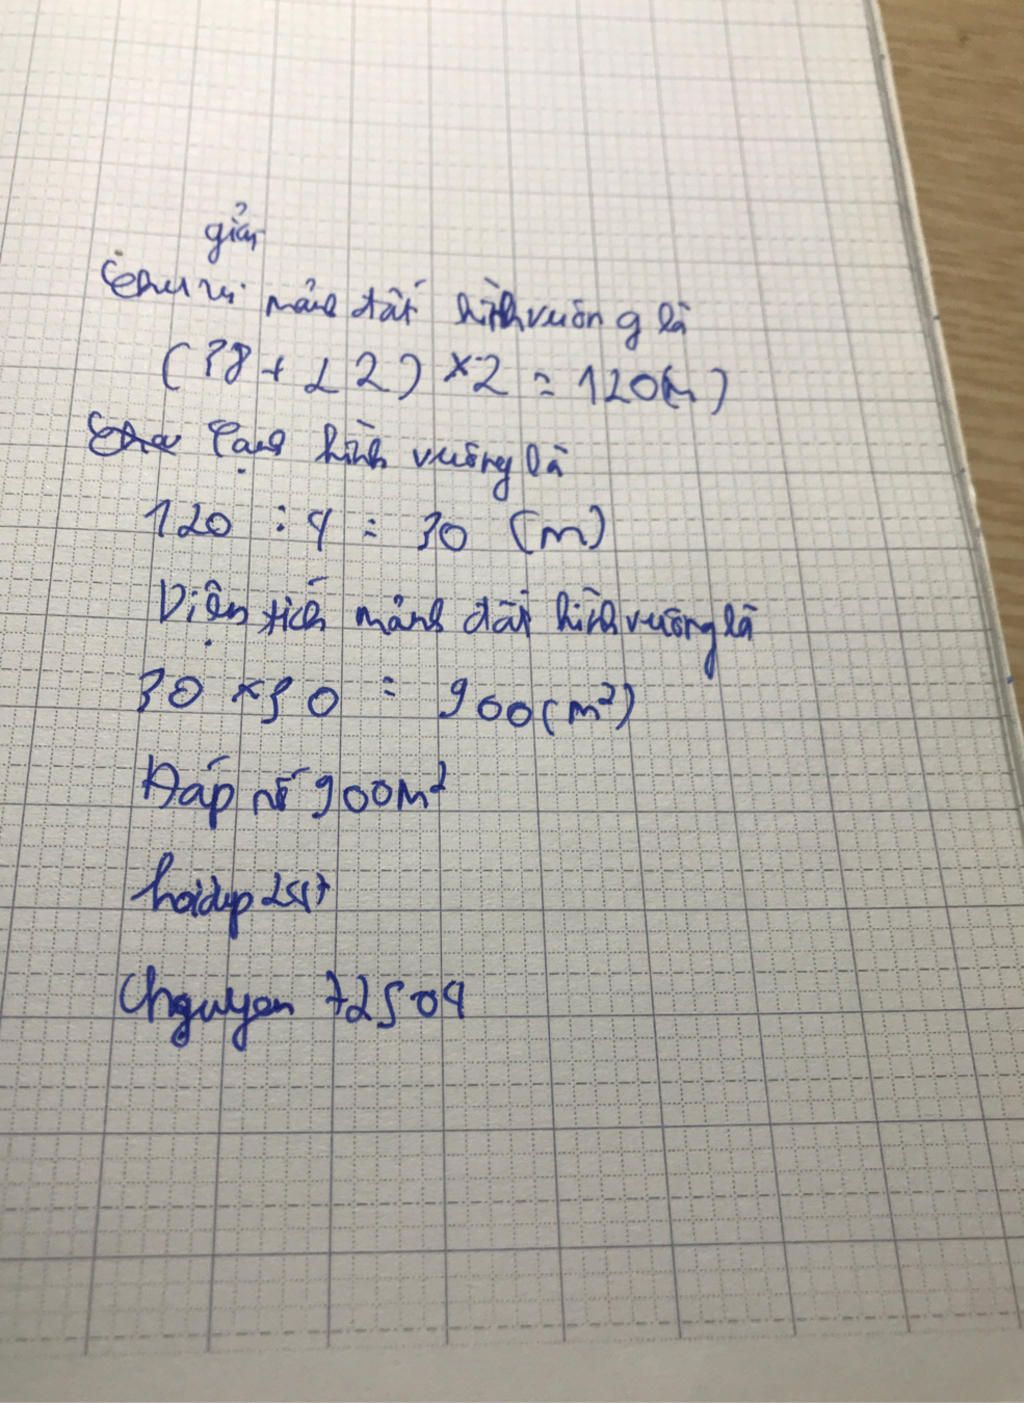 giải
Chu vi mảnh đất hình vuông là
(38 + 22) × 2 = 120(m)
Cạnh hình vuông là
120 : 4 = 30 (m)
Diện tích mảnh đất hình vuông là
30 × 30 = 900(m²)
Đáp số 900m²
hoidap247
Chguyen 72504